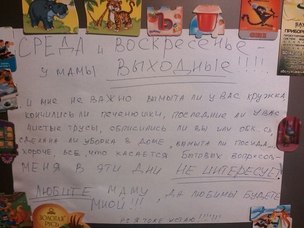 СРЕДА и ВОСКРЕСЕНЬЕ -
У МАМЫ ВЫХОДНЫЕ!!!!
И МНЕ НЕ ВАЖНО ВЫМЫТА ЛИ У ВАС КРУЖКА,
КОНЧИЛИСЬ ЛИ ПЕЧЕНЮШКИ, ПОСЛЕДНИЕ ЛИ У ВАС
ЧИСТЫЕ ТРУСЫ, ЛИ ВЫ ИЛИ
СДЕЛАНА ЛИ УБОРКА В ДОМЕ, ВЫМЫТА ЛИ ПОСУДА,
КОРОЧЕ ВСЁ, ЧТО КАСАЕТСЯ БЫТОВЫХ ВОПРОСОВ
МЕНЯ В ЭТИ ДНИ НЕ ИНТЕРЕСУЕТ
ЛЮБИТЕ МАМУ, ДА ЛЮБИМЫ БУДЕТЕ
МНОЙ!!!
Я ТОЖЕ УСТАЮ!!!!
ЗОЛОТАЯ
РУСЬ